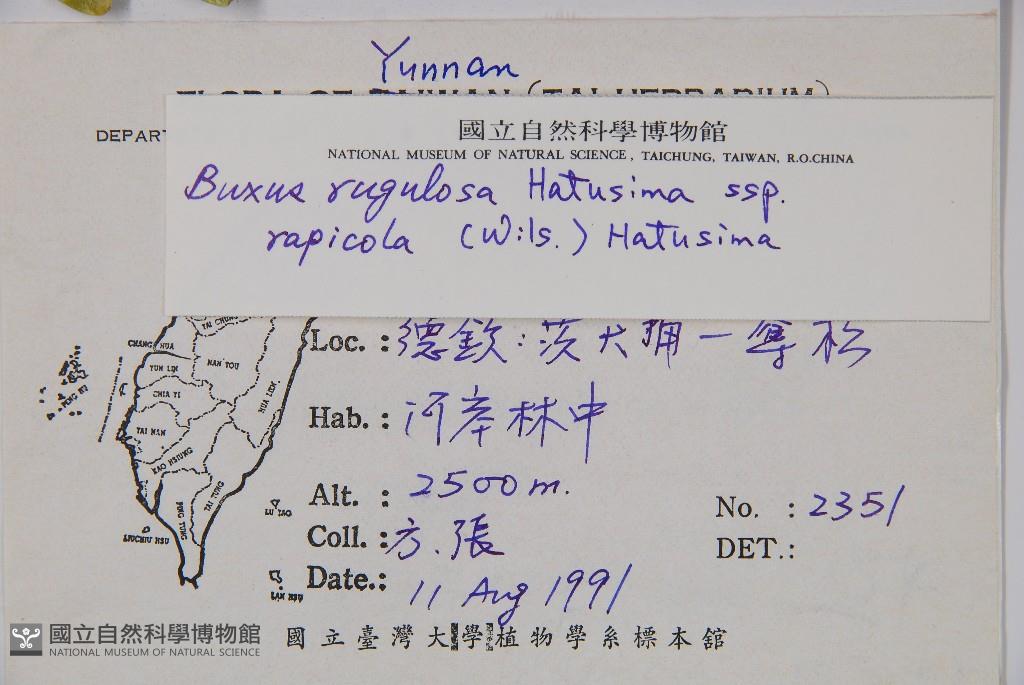 Yunnan
FLORA OF TAIWAN (TAI HERBARIUM)
DEPAR
國立自然科學博物館
NATIONAL MUSEUM OF NATURAL SCIENCE, TAICHUNG, TAIWAN, R.O.CHINA
Buxus rugulosa Hatusima ssp.
rapicola (Wils.) Hatusima
TAI CHUNG
CHANG HUA
NAN TOU
YUN LIN
CHIA YI
HUA LIEN
PENG HU
TAI NAN
KAO HSIUNG
TAI TUNG
PING TUNG
LU TAO
LIUCHIU HSU
LAN HSU
Loc. : 德欽:茨大 一 松
Hab. : 河岸林中
Alt. : 2500 m.
Coll. : 方.張
Date. : 11 Aug 1991
No. : 2351
DET.:
國立臺灣大學植物學系標本館
國立自然科學博物館
NATIONAL MUSEUM OF NATURAL SCIENCE